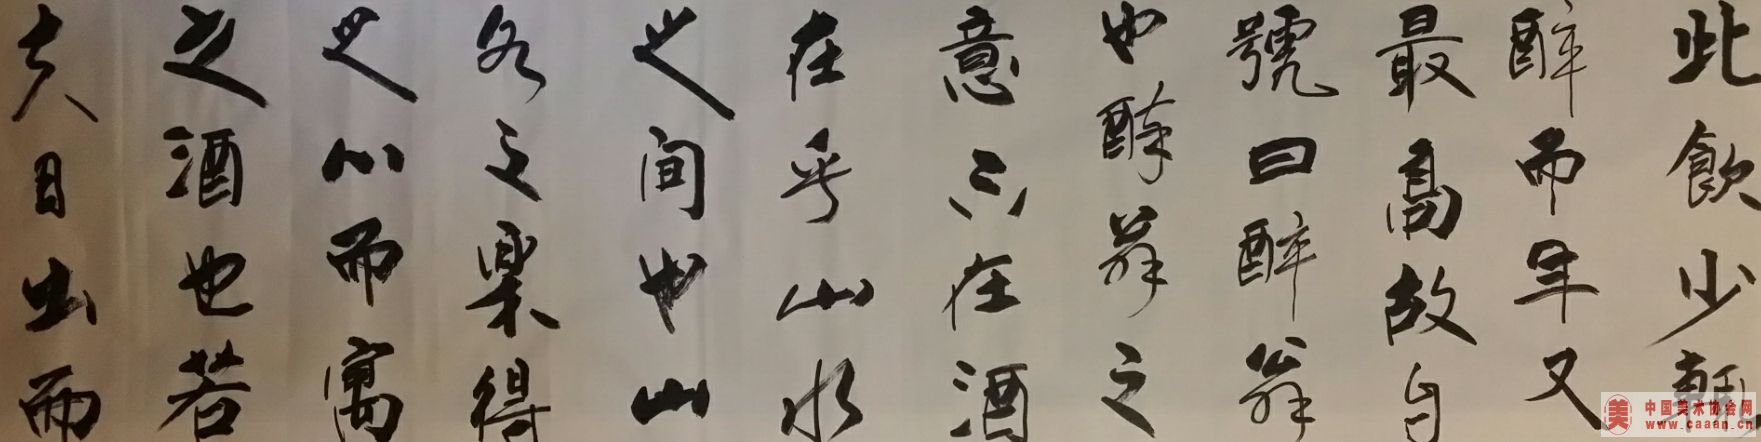 此飲少輒
醉而年又
最高故自
號曰醉翁
也醉翁之
意不在酒
在乎山水
之间也山
水之樂得
之心而寓
之酒也若
夫日出而
美 中国美术协会网
www.caaan.cn